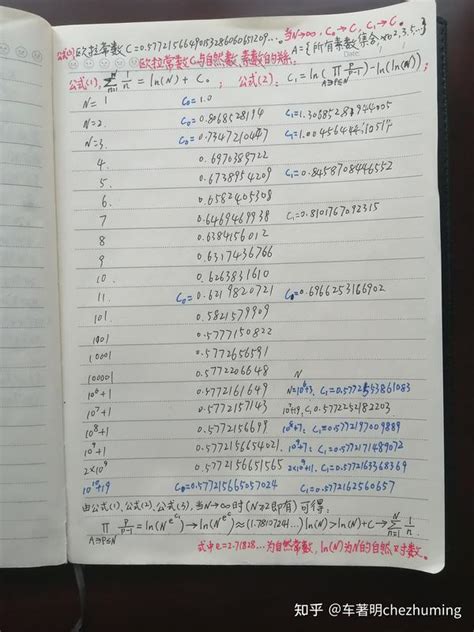 公式(0)欧拉常数C=0.5772156649015328606065120​9... 当N→∞, C₀→C, C₁→C.
欧拉常数C与自然数、素数的关系. A={所有素数集合, 如2,3,5...}
公式(1), N∑n=1 1/n = ln(N)+C₀; 公式(2): C₁=ln(∏A∋P≤N P/(P-1))-ln(ln(N));
N= 1 C₀=1.0
N=2. C₀=0.8068528194 C₁=1.30685282944005
N=3. C₀=0.7347210447
4. 0.6970389722
5. 0.6738954209 C₁=0.8458708446552
6. 0.6582405308
7 0.6469469938 C₁=0.8101767092315
8 0.6384156012
9 0.6317436766
10. 0.6263831610
11. C₀=0.6219820721 C₁=0.6966253166902
101 0.5821579909
1001 0.5777150822
10001 0.5772656591
100001 0.5772206648 N
10⁶+1 0.5772161649 N=10⁶+3, C₁=0.5772553861083
10⁷+1 0.5772157143 10⁷+19, C₁ 0.5772252182203
10⁸+1 0.5772156699 10⁸+7: C₁=0.5772197009889
10⁹+1 0.577215654021 10⁹+7: C₁=0.5772171489072
2×10⁹ 0.57721565​1565 2×10⁹+11: C₁=0.5772163368369
10¹⁰+19 C₀=0.577215665057024 C₁=0.5772162560657
由公式(1)、公式(2)、公式(3), 当N→∞时(N≥2即有)可得:
∏A∋P≤N P/(P-1) = ln(N^e^C₁)→ln(N^e^C)≈(1.78107241...)ln(N)>ln(N)+C→N∑n=1 1/n.
式中e=2.71828...为自然常数, ln(N)为N的自然对寸数.
知乎 @车著明chezhuming